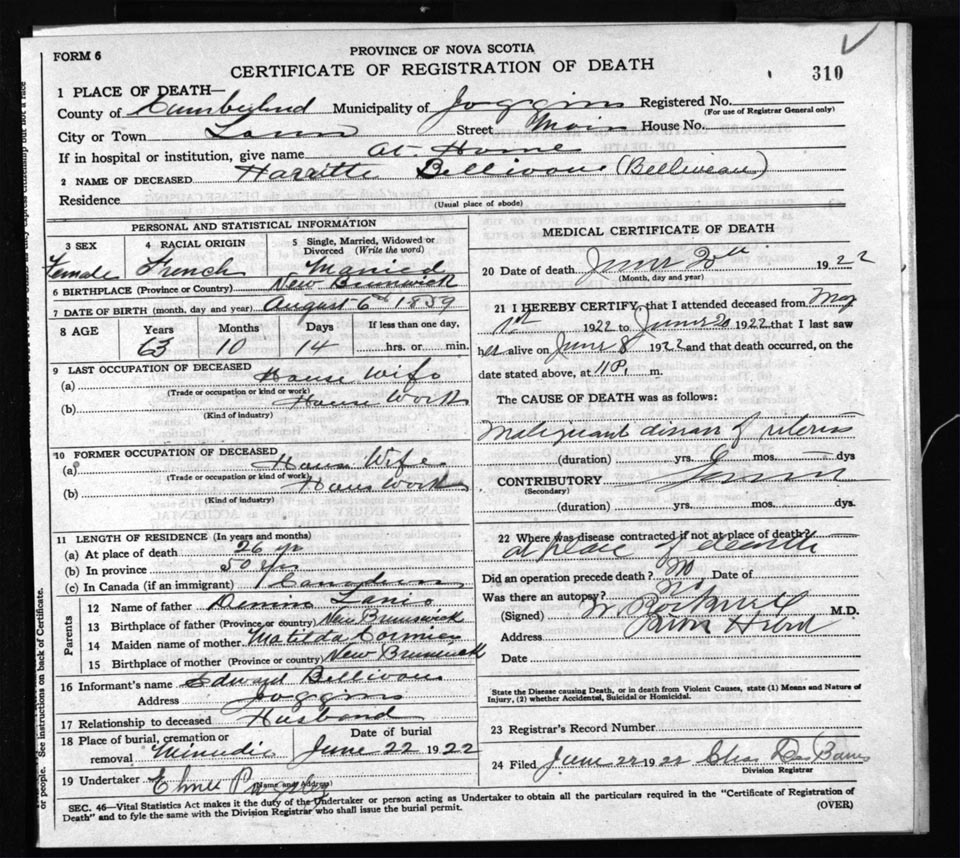 FORM 6
PROVINCE OF NOVA SCOTIA
CERTIFICATE OF REGISTRATION OF DEATH
310
1 PLACE OF DEATH—
County of Cumberland Municipality of Joggins Registered No.
(For use of Registrar General only)
City or Town Town Street Main House No.
If in hospital or institution, give name at Home
2 NAME OF DECEASED Harritte Bellivou (Belliveau)
Residence
(Usual place of abode)
PERSONAL AND STATISTICAL INFORMATION
3 SEX 4 RACIAL ORIGIN 5 Single, Married, Widowed or Divorced (Write the word)
Female French Married
6 BIRTHPLACE (Province or Country) New Brunswick
7 DATE OF BIRTH (month, day and year) August 6th 1859
8 AGE Years Months Days If less than one day,
63 10 14 hrs. or min.
9 LAST OCCUPATION OF DECEASED
(a) House Wife
(Trade or occupation or kind or work)
(b) House Work
(Kind of industry)
10 FORMER OCCUPATION OF DECEASED
(a) House Wife
(Trade or occupation or kind of work)
(b) House Work
(Kind of industry)
11 LENGTH OF RESIDENCE (In years and months)
(a) At place of death 26 yr
(b) In province 50 yrs
(c) In Canada (if an immigrant) Canadian
Parents
12 Name of father
13 Birthplace of father (Province or country) New Brunswick
14 Maiden name of mother Matilda Cormier
15 Birthplace of mother (Province or country) New Brunswick
16 Informant's name Edward Bellivou
Address Joggins
17 Relationship to deceased Husband
18 Place of burial, cremation or removal Minudie
Date of burial
June 22 1922
19 Undertaker
(Name and address)
MEDICAL CERTIFICATE OF DEATH
20 Date of death June 20th 1922
(Month, day and year)
21 I HEREBY CERTIFY, that I attended deceased from May
1st 1922 to June 20 1922 that I last saw
her alive on June 8 1922 and that death occurred, on the
date stated above, at 11 P. m.
The CAUSE OF DEATH was as follows:
Malignant disease of uterus
(duration) yrs. mos. dys
CONTRIBUTORY
(Secondary)
(duration) yrs. mos. dys.
22 Where was disease contracted if not at place of death?
at place of death
Did an operation precede death? No Date of
Was there an autopsy? No
(Signed) M.D.
Address River Hebert
Date
State the Disease causing Death, or in death from Violent Causes, state (1) Means and Nature of
Injury, (2) whether Accidental, Suicidal or Homicidal.
23 Registrar's Record Number
24 Filed June 22 1922
Division Registrar
SEC. 46—Vital Statistics Act makes it the duty of the Undertaker or person acting as Undertaker to obtain all the particulars required in the "Certificate of Registration of
Death" and to fyle the same with the Division Registrar who shall issue the burial permit. (OVER)
or people. See instructions on back of Certificate.